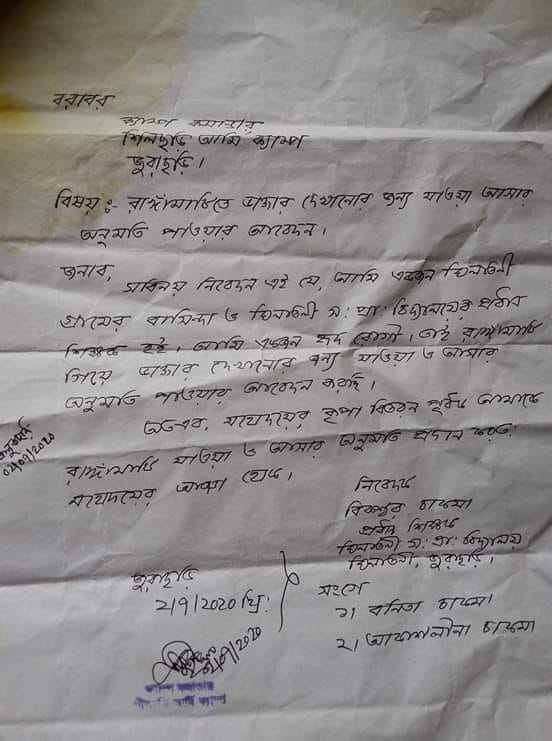 বরাবর
ক্যাম্প কমান্ডার
শিলছড়ি আর্মি ক্যাম্প
জুরাছড়ি।
বিষয়ঃ- রাঙ্গামাটিতে ডাক্তার দেখানোর জন্য যাওয়া আসার
অনুমতি পাওয়ার আবেদন।
জনাব,
সবিনয় নিবেদন এই যে, আমি একজন
গ্রামের বাসিন্দা ও স: প্রা: বিদ্যালয়ের প্রধান
শিক্ষক হই। আমি একজন হৃদ রোগী। তাই রাঙ্গামাটি
গিয়ে ডাক্তার দেখানোর জন্য যাওয়া ও আসার
অনুমতি পাওয়ার আবেদন করছি।
অতএব, মহোদয়ের কৃপা বিতরন পূর্বক আমাকে
রাঙ্গামাটি যাওয়া ও আসার অনুমতি প্রদান করতে
মহোদয়ের আজ্ঞা হোক।
নিবেদক
চাকমা
প্রধান শিক্ষক
স: প্রা: বিদ্যালয়
জুরাছড়ি।
জুরাছড়ি
2/9/2020 খ্রি:
সংগে
১) বনিতা চাকমা
২) চাকমা
02/09/2020
02/09/2020
ক্যাম্প কমান্ডার
আর্মি ক্যাম্প